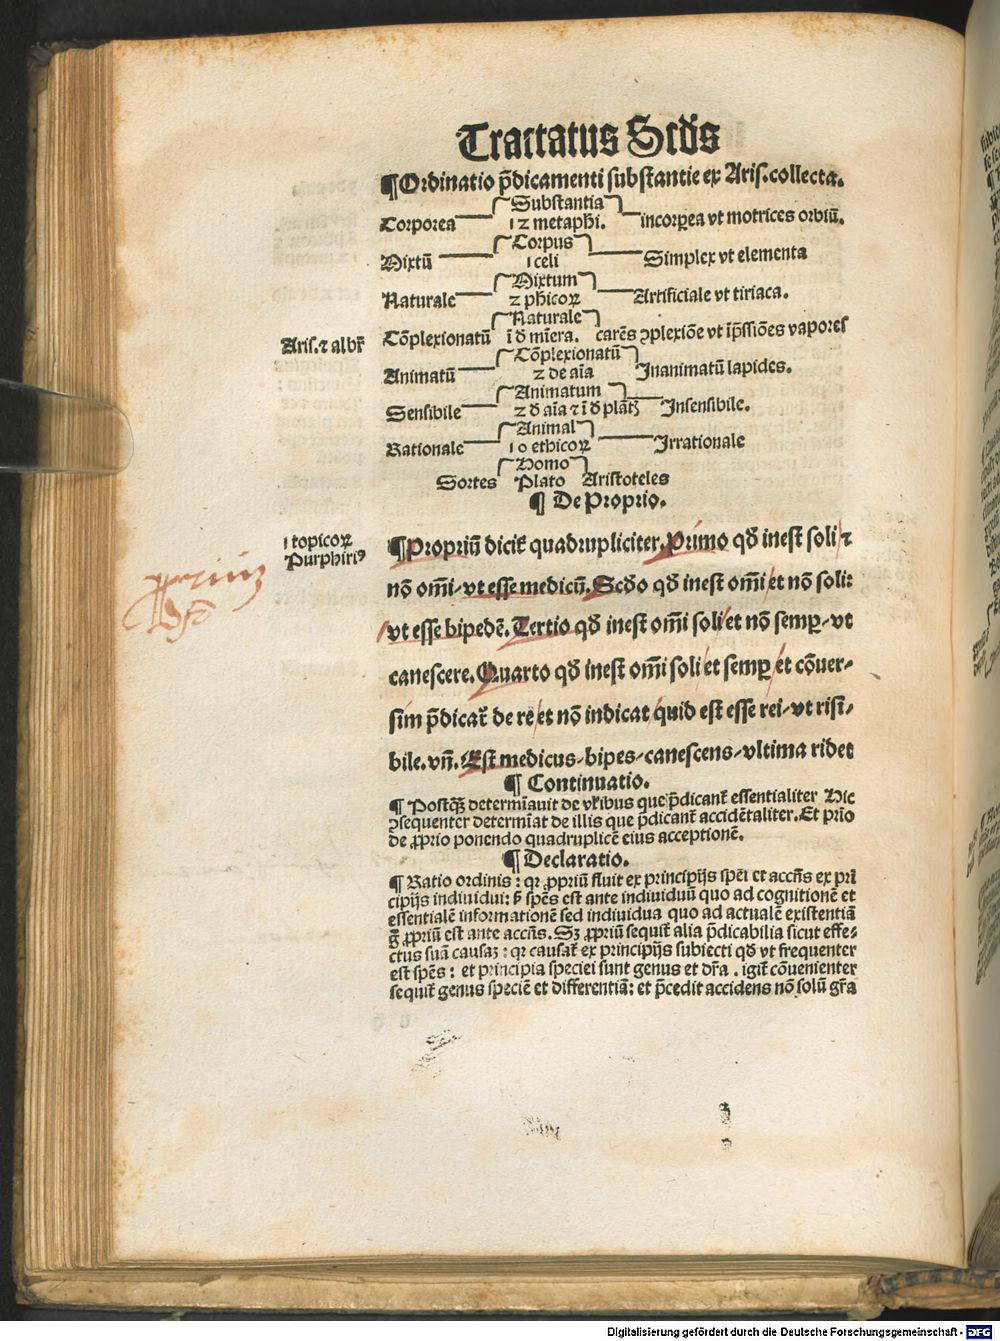 Tractatus Scds
¶Ordinatio p̄dicamenti substantie ex Aris.collecta.
Substantia
Corporea 12 metaphi. incorꝑea vt motrices orbiū.
Corpus
Mixtū 1 celi Simplex vt elementa
Mixtum
Naturale 2 phicoꝝ Artificiale vt tiriaca.
Naturale
Aris.⁊ albr̄ Cōplexionatū ī d mīera. carēs ꝯplexiōe vt īp̄ssiōes vapores
Cōplexionatū
Animatū 2 de aīa Inanimatū lapides.
Animatum
Sensibile 2 d aīa ⁊ ī d plātꝭ Insensibile.
Animal
Rationale 10 ethicoꝝ Irrationale
Homo
Sortes Plato Aristoteles
¶ De Proprio.
1 topicoꝝ
Purphiriꝰ
¶Propriū dicit̄ quadrupliciter. Primo qd̄ inest soli ⁊
nō om̄i/vt esse medicū. Scd̄o qd̄ inest om̄i et nō soli:
vt esse bipedē. Tertio qd̄ inest om̄i soli et nō semꝑ/vt
canescere. Quarto qd̄ inest om̄i soli et semꝑ et cōuer/
sim p̄dicat̄ de re et nō indicat quid est esse rei/vt risi/
bile. vn̄. Est medicus/bipes/canescens/vltima ridet
¶ Continuatio.
¶ Postq̄ȝ determīauit de vl̄ibus que p̄dicant̄ essentialiter Hic
ꝯsequenter determīat de illis que p̄dicant̄ accidētaliter. Et pr̄io
de ꝓprio ponendo quadruplicē eius acceptionē.
¶ Declaratio.
¶ Ratio ordinis: qr ꝓpriū fluit ex principijs spēi et accn̄s ex pri
cipijs indiuidui: s̄ spēs est ante indiuiduū quo ad cognitionē et
essentialē informationē sed indiuidua quo ad actualē existentiā
g̊ ꝓpriū est ante accn̄s. Sȝ ꝓpriū sequit̄ alia p̄dicabilia sicut effe/
ctus suā causaȝ: qr causat̄ ex principijs subiecti qd̄ vt frequenter
est spēs: et principia speciei sunt genus et dr̄a. igit̄ cōuenienter
sequit̄ genus speciē et differentiā: et p̄cedit accidens nō solū gr̄a
Digitalisierung gefördert durch die Deutsche Forschungsgemeinschaft - DFG